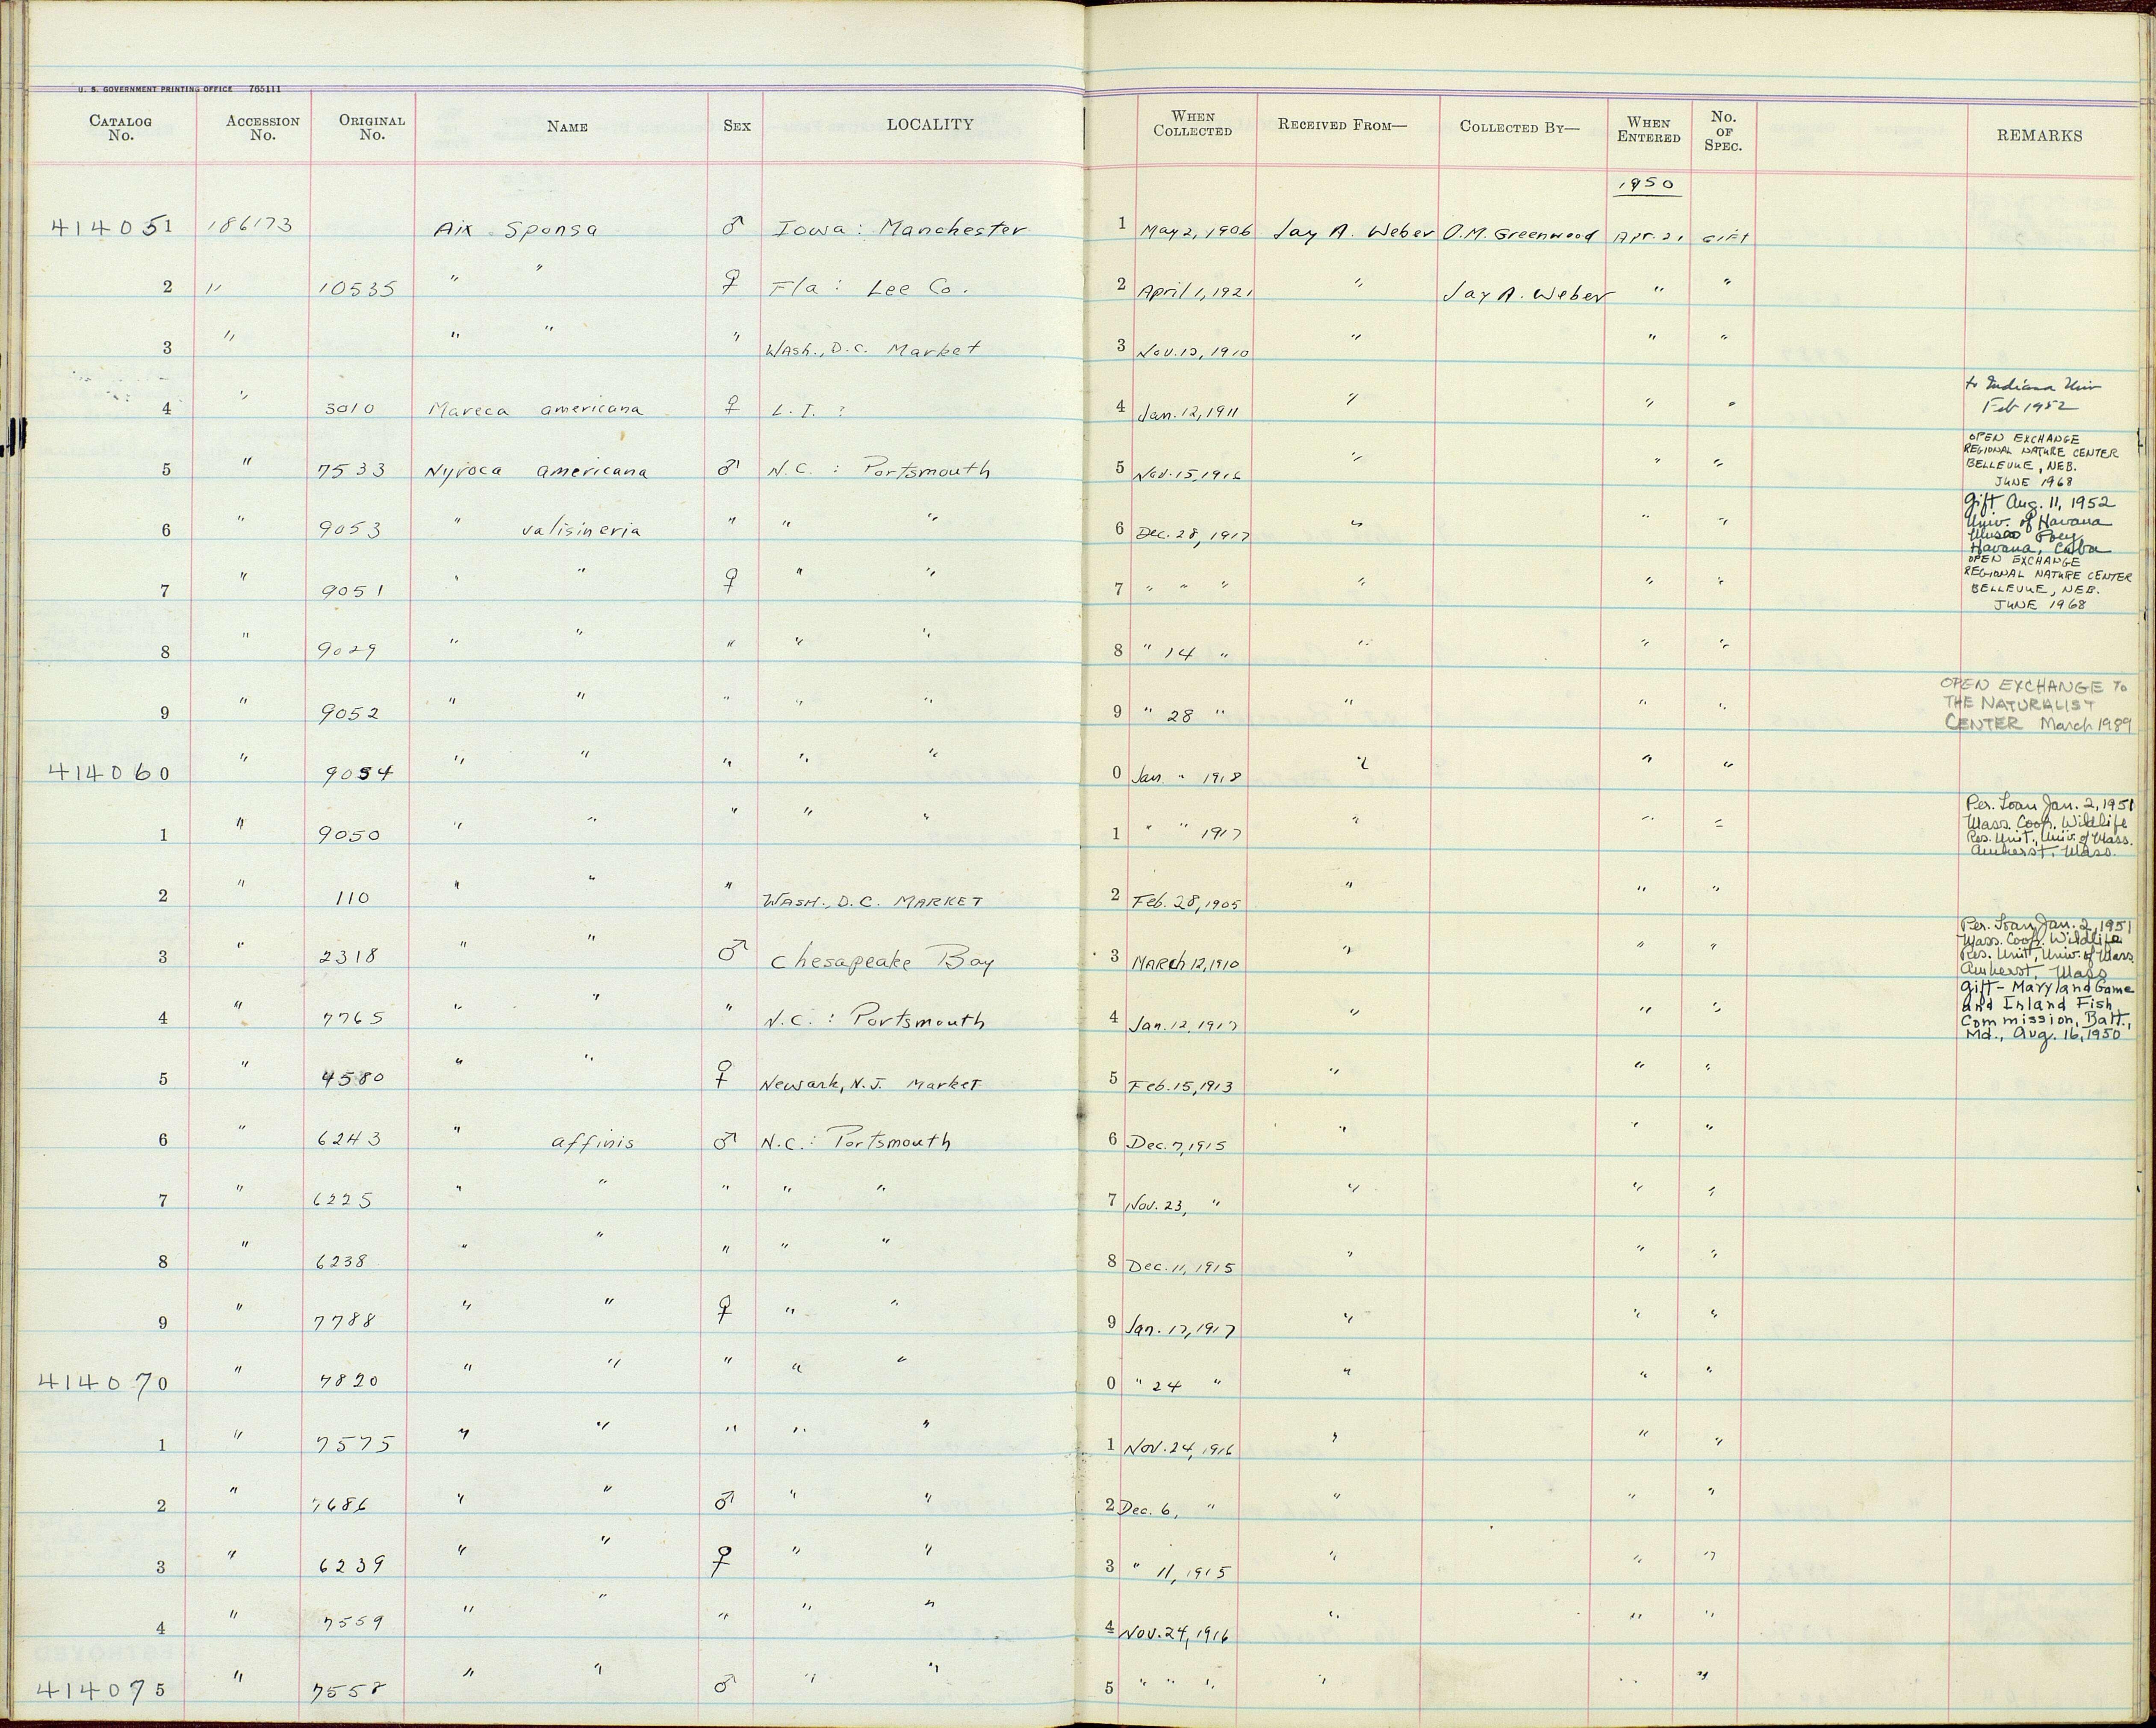 U. S. GOVERNMENT PRINTING OFFICE 765111
CATALOG No. ACCESSION No. ORIGINAL No. NAME SEX LOCALITY WHEN COLLECTED RECEIVED FROM— COLLECTED BY— WHEN ENTERED No. OF SPEC. REMARKS
1950
414051 186173 Aix Sponsa ♂ Iowa: Manchester 1 May 2, 1906 Jay A. Weber O.M. Greenwood Apr. 21 Gift
2 " 10535 " " ♀ Fla: Lee Co. 2 April 1, 1921 " Jay A. Weber " "
3 " " " " Wash., D.C. Market 3 Nov. 12, 1910 " " "
4 " 3010 Mareca americana ♀ L. I. ? 4 Jan. 12, 1911 " " " to Indiana Univ
Feb 1952
5 " 7533 Nyroca americana ♂ N.C. : Portsmouth 5 Nov. 15, 1916 " " " OPEN EXCHANGE
REGIONAL NATURE CENTER
BELLEVUE, NEB.
JUNE 1968
6 " 9053 " valisineria " " " 6 Dec. 28, 1917 " " " Gift Aug. 11, 1952
Univ. of Havana
Museo Poey
Havana, Cuba
7 " 9051 " " ♀ " " 7 " " " " " " OPEN EXCHANGE
REGIONAL NATURE CENTER
BELLEVUE, NEB.
JUNE 1968
8 " 9029 " " " " " 8 " 14 " " " "
9 " 9052 " " " " " 9 " 28 " " " " OPEN EXCHANGE TO
THE NATURALIST
CENTER March 1989
414060 " 9054 " " " " " 0 Jan. " 1918 " " "
1 " 9050 " " " " " 1 " " 1917 " " " Per. Loan Jan. 2, 1951
Mass. Coop. Wildlife
Res. Unit, Univ. of Mass.
Amherst, Mass.
2 " 110 " " " WASH., D.C. MARKET 2 Feb. 28, 1905 " " "
3 " 2318 " " ♂ Chesapeake Bay 3 MARCH 12, 1910 " " " Per. Loan Jan. 2, 1951
Mass. Coop. Wildlife
Res. Unit, Univ. of Mass
Amherst, Mass
4 " 7765 " " " N.C. : Portsmouth 4 Jan. 12, 1917 " " " Gift - Maryland Game
and Inland Fish
Commission, Balt.,
Md., Aug. 16, 1950
5 " 4580 " " ♀ Newark, N.J. Market 5 Feb. 15, 1913 " " "
6 " 6243 " affinis ♂ N.C.: Portsmouth 6 Dec. 7, 1915 " " "
7 " 6225 " " " " " 7 Nov. 23, " " " "
8 " 6238 " " " " " 8 Dec. 11, 1915 " " "
9 " 7788 " " ♀ " " 9 Jan. 17, 1917 " " "
414070 " 7820 " " " " " 0 " 24 " " " "
1 " 7575 " " " " " 1 Nov. 24, 1916 " " "
2 " 7686 " " ♂ " " 2 Dec. 6, " " " "
3 " 6239 " " ♀ " " 3 " 11, 1915 " " "
4 " 7559 " " " " " 4 Nov. 24, 1916 " " "
414075 " 7558 " " ♂ " " 5 " " " " " "